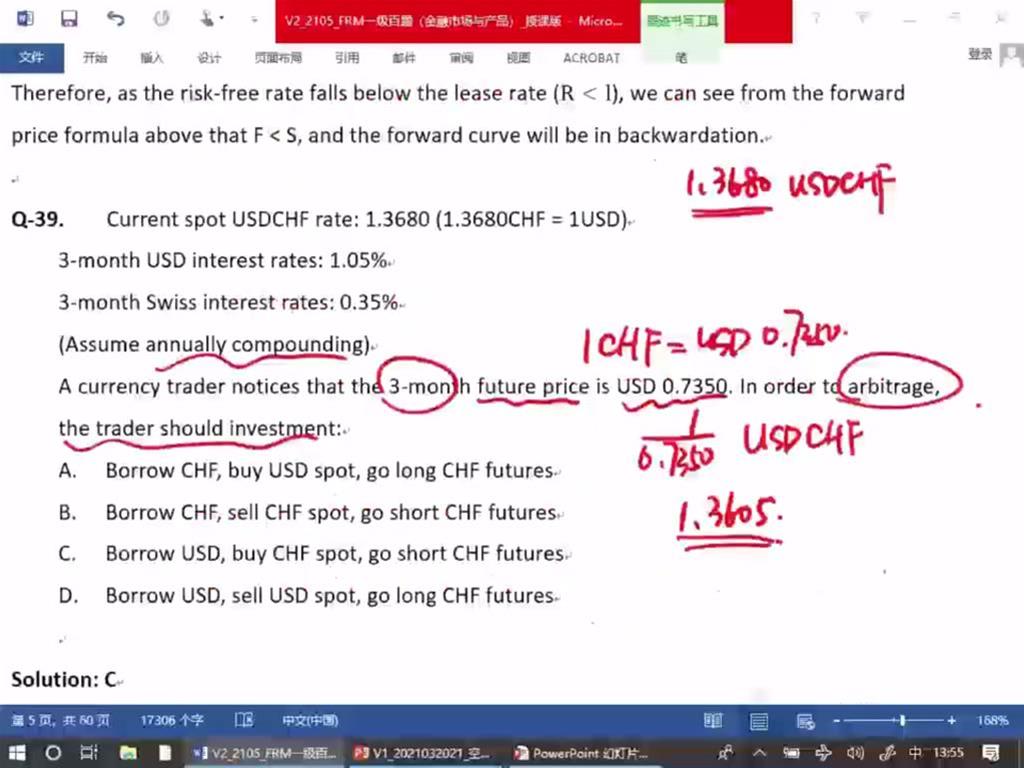 V2_2105_FRM一级百题（金融市场与产品）_授课版 - Micro...
墨迹书写工具
文件 开始 插入 设计 页面布局 引用 邮件 审阅 视图 ACROBAT 笔 登录
Therefore, as the risk-free rate falls below the lease rate (R < l), we can see from the forward
price formula above that F < S, and the forward curve will be in backwardation.
1.3680 USDCHF
Q-39. Current spot USDCHF rate: 1.3680 (1.3680CHF = 1USD)
3-month USD interest rates: 1.05%
3-month Swiss interest rates: 0.35%
(Assume annually compounding)
1 CHF = USD 0.7350.
A currency trader notices that the 3-month future price is USD 0.7350. In order to arbitrage,
the trader should investment:
1/0.7350 USDCHF
A. Borrow CHF, buy USD spot, go long CHF futures
B. Borrow CHF, sell CHF spot, go short CHF futures
1.3605.
C. Borrow USD, buy CHF spot, go short CHF futures
D. Borrow USD, sell USD spot, go long CHF futures
Solution: C
第 5 页，共 60 页 17306 个字 中文(中国) 168%
V2_2105_FRM一级百... V1_2021032021_空... PowerPoint 幻灯片... 中 13:55